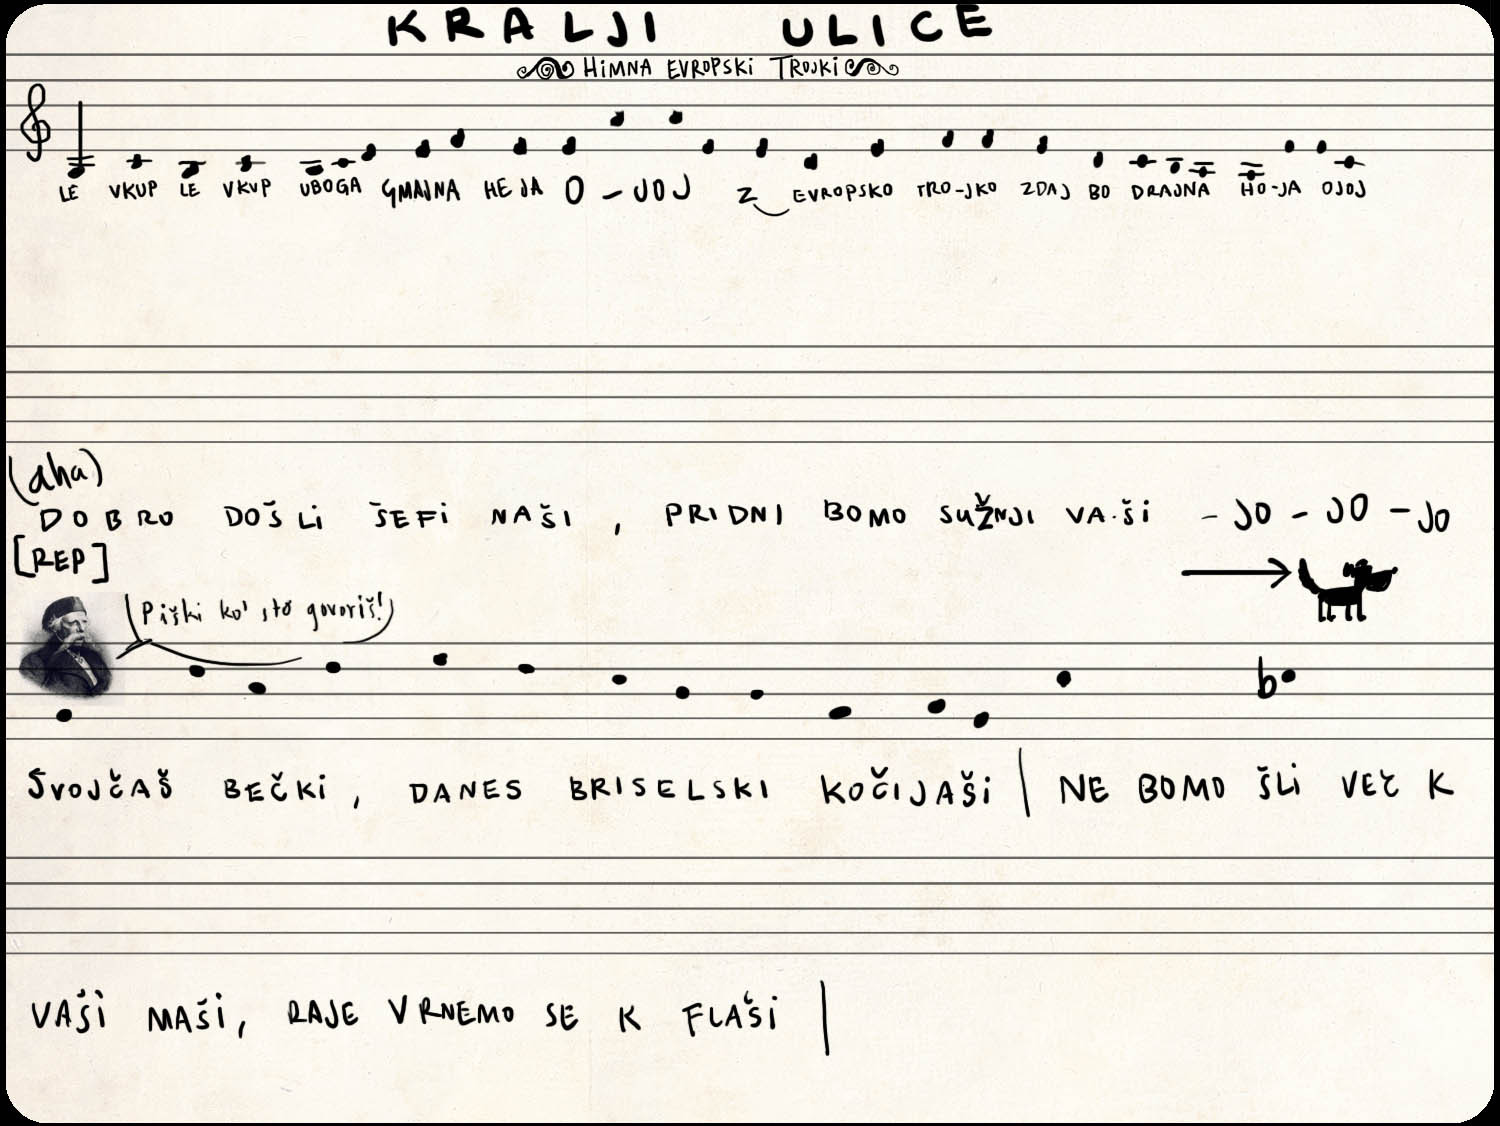 KRALJI ULICE
HIMNA EVROPSKI TROJKI
LE VKUP LE VKUP UBOGA GMAJNA HEJA O - JOJ Z EVROPSKO TRO-JKO ZDAJ BO DRAJNA HO-JA OJOJ
(aha)
DOBRO DOŠLI ŠEFI NAŠI, PRIDNI BOMO SUŽNJI VAŠI - JO - JO - JO
[REP]
Piški ko' sto govoriš!
SVOJČAŠ BEČKI, DANES BRISELSKI KOČIJAŠI | NE BOMO ŠLI VEČ K
VAŠI MAŠI, RAJE VRNEMO SE K FLAŠI |